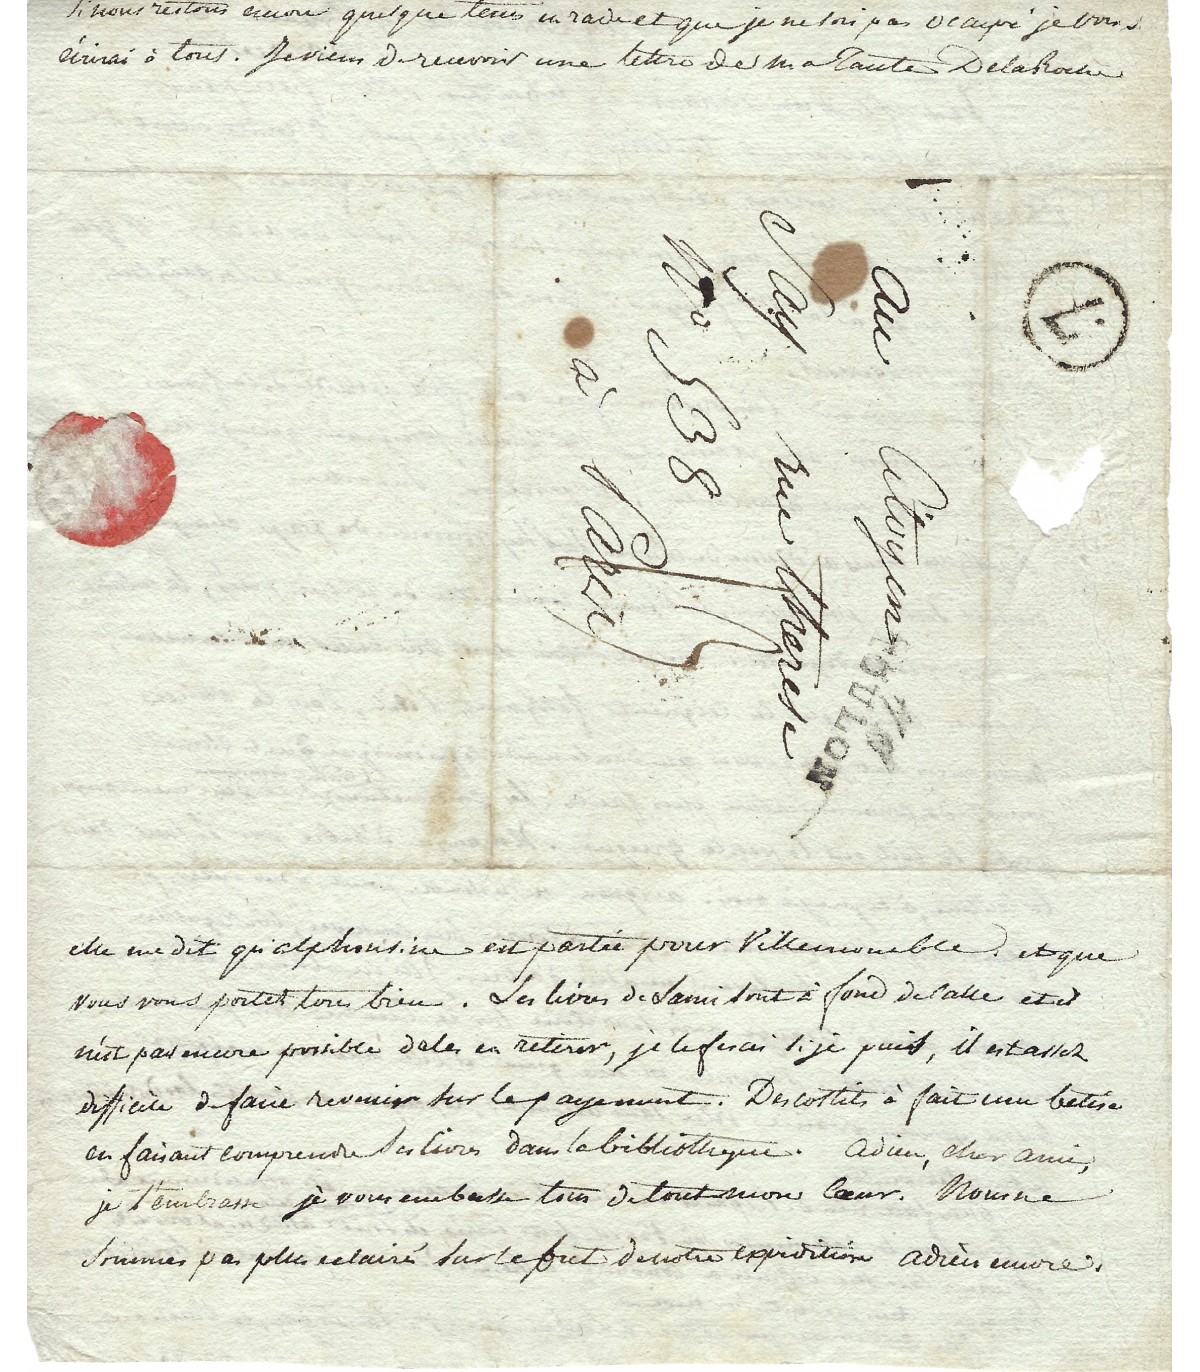 Si nous restons encore quelque tems en rade et que je ne sois pas occupé je vous
écrirai à tous. Je viens de recevoir une lettre de ma Tante Delaroche
L
au Citoyen
Say rue therese
No 538
à Paris
TOULON
elle me dit qu'alphonsine est partie pour Villemomble. et que
vous vous portez tous bien. Les livres de Say sont à fond de calle et il
n'est pas encore possible de les en retirer, je le ferai si je puis, il est assez
difficile de faire revenir sur le payement. Descostils à fait une betise
en faisant comprendre ses livres dans la bibliotheque. adieu, cher ami,
je t'embrasse je vous embrasse tous de tout mon cœur. Nous ne
sommes pas plus eclairé sur le but de notre expédition adieu encore.